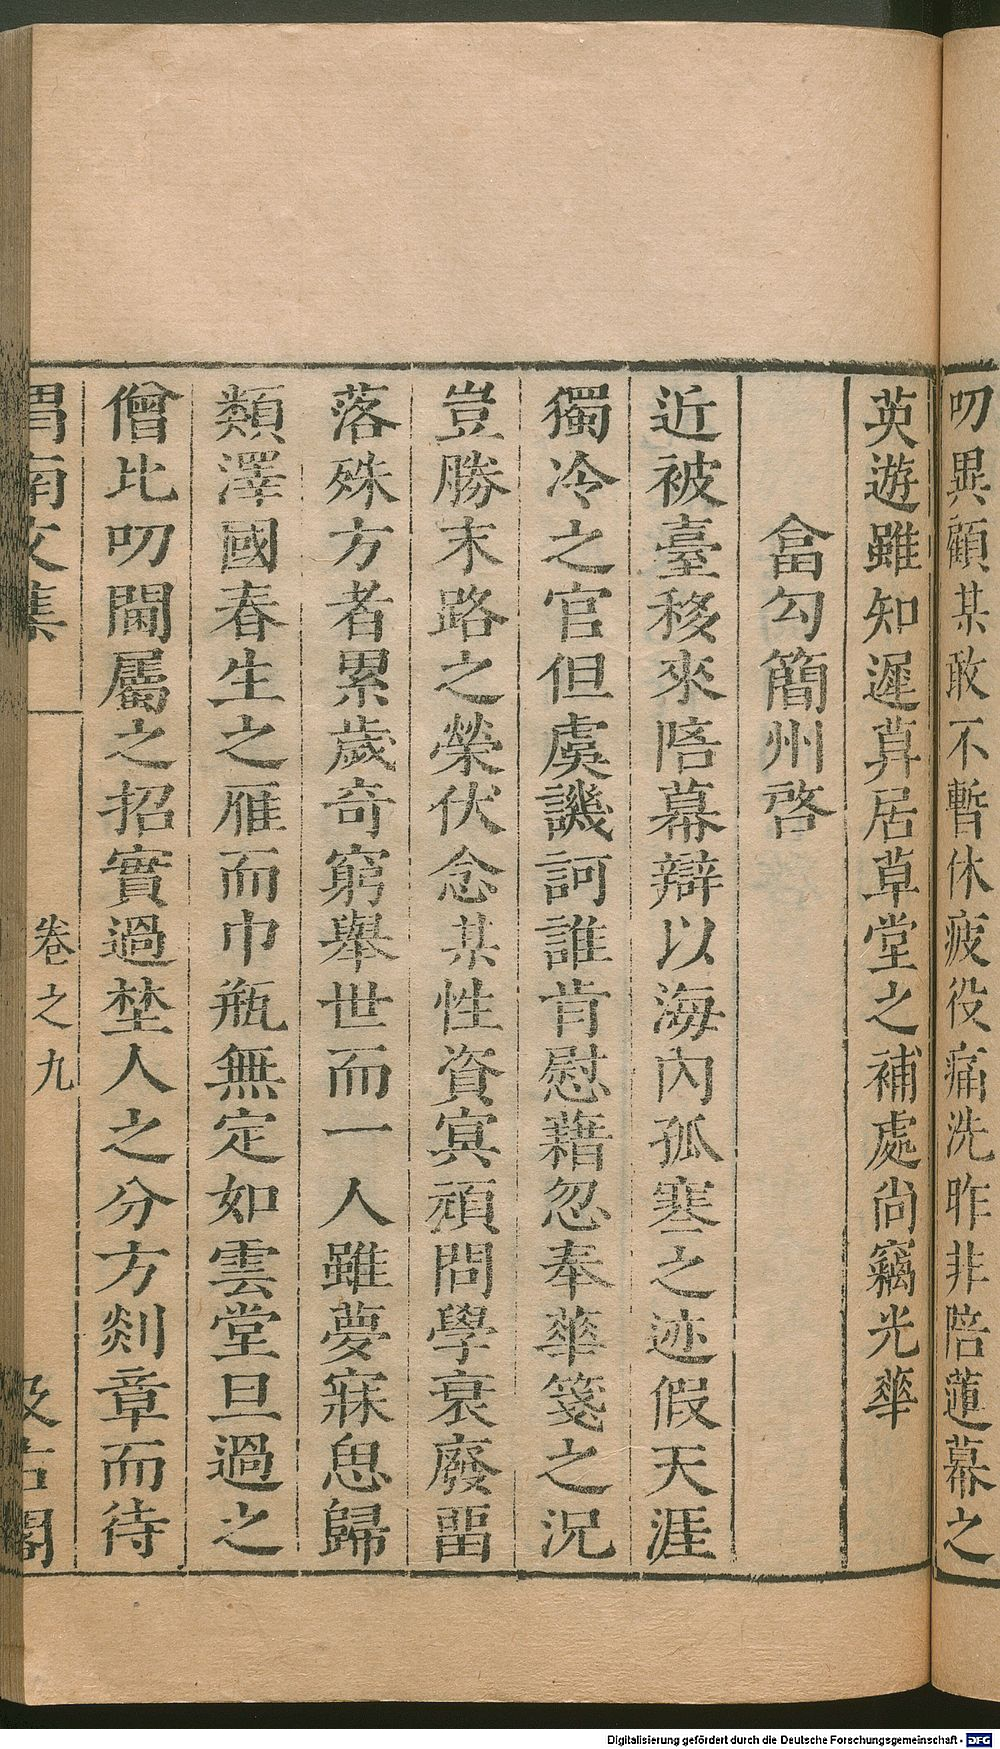 叨異顧某敢不暫休疲役痛洗昨非陪蓮幕之
英遊雖知遲莫居草堂之補處尚竊光華
畣勾簡州啓
近被臺移來陪幕辯以海內孤寒之迹假天涯
獨冷之官但虞譏訶誰肯慰藉忽奉華箋之況
豈勝末路之榮伏念某性資寘頑問學衰廢畱
落殊方者累歲奇窮舉世而一人雖夢寐思歸
類澤國春生之雁而巾瓶無定如雲堂旦過之
僧比叨閫屬之招實過埜人之分方剡章而待
渭南文集
卷之九
汲古閣
Digitalisierung gefördert durch die Deutsche Forschungsgemeinschaft - DFG